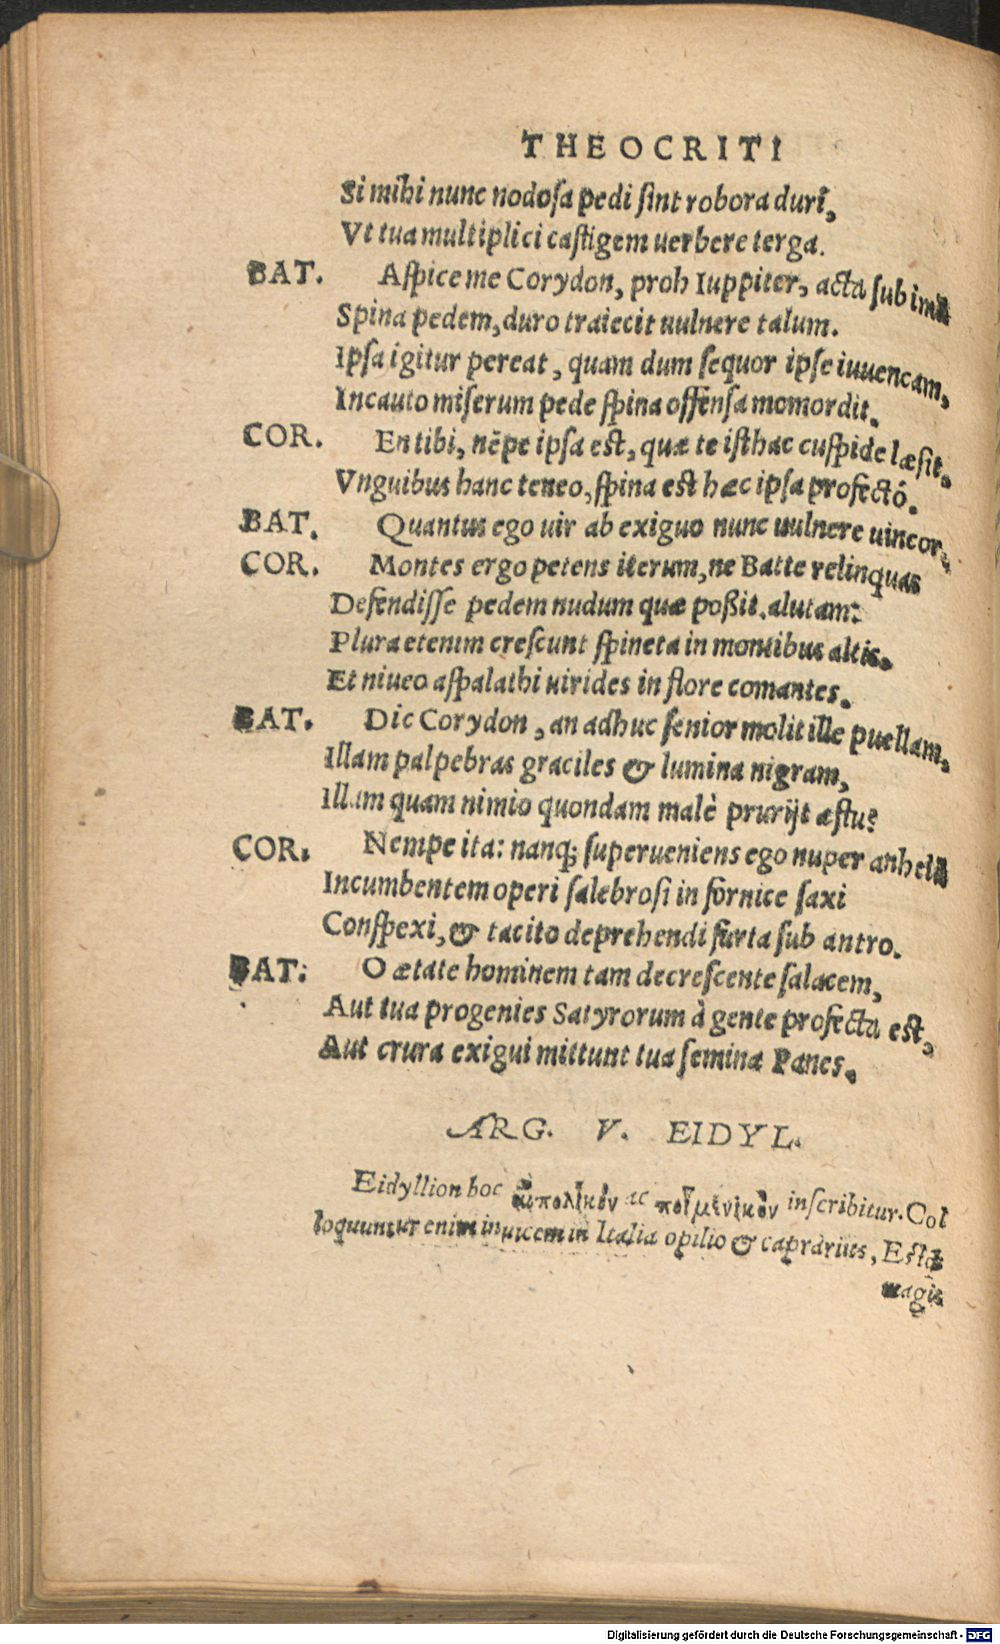 THEOCRITI
Si mihi nunc nodosa pedi ſint robora duri,
Vt tua multiplici caſtigem uerbere terga.
BAT. Aſpice me Corydon, proh Iuppiter, acta ſub imũ
Spina pedem, duro traiecit uulnere talum.
Ipſa igitur pereat, quam dum ſequor ipſe iuuencam,
Incauto miſerum pede ſpina offenſa momordit.
COR. En tibi, nẽpe ipſa eſt, quæ te iſthac cuſpide læſit.
Vnguibus hanc teneo, ſpina est hæc ipſa profectó.
BAT. Quantus ego uir ab exiguo nunc uulnere uincor.
COR. Montes ergo petens iterum, ne Batte relinquas
Defendiſſe pedem nudum quæ poßit alutam:
Plura etenim creſcunt ſpineta in montibus altis.
Et niueo aſpalathi uirides in flore comantes.
BAT. Dic Corydon, an adhuc ſenior molit ille puellam,
Illam palpebras graciles & lumina nigram,
Illam quam nimio quondam malè prurijt æſtu?
COR. Nempe ita: nanq; ſuperueniens ego nuper anhelũ
Incumbentem operi ſalebroſi in fornice ſaxi
Conſpexi, & tacito deprehendi furta ſub antro.
BAT. O ætate hominem tam decreſcente ſalacem,
Aut tua progenies Satyrorum à gente profecta est,
Aut crura exigui mittunt tua ſemina Panes.
ARG. V. EIDYL.
Eidyllion hoc αἰπολικὸν ac ποιμενικὸν inſcribitur. Col
loquuntur enim inuicem in Italia opilio & caprarius, Estq;
magis
Digitalisierung gefördert durch die Deutsche Forschungsgemeinschaft - DFG